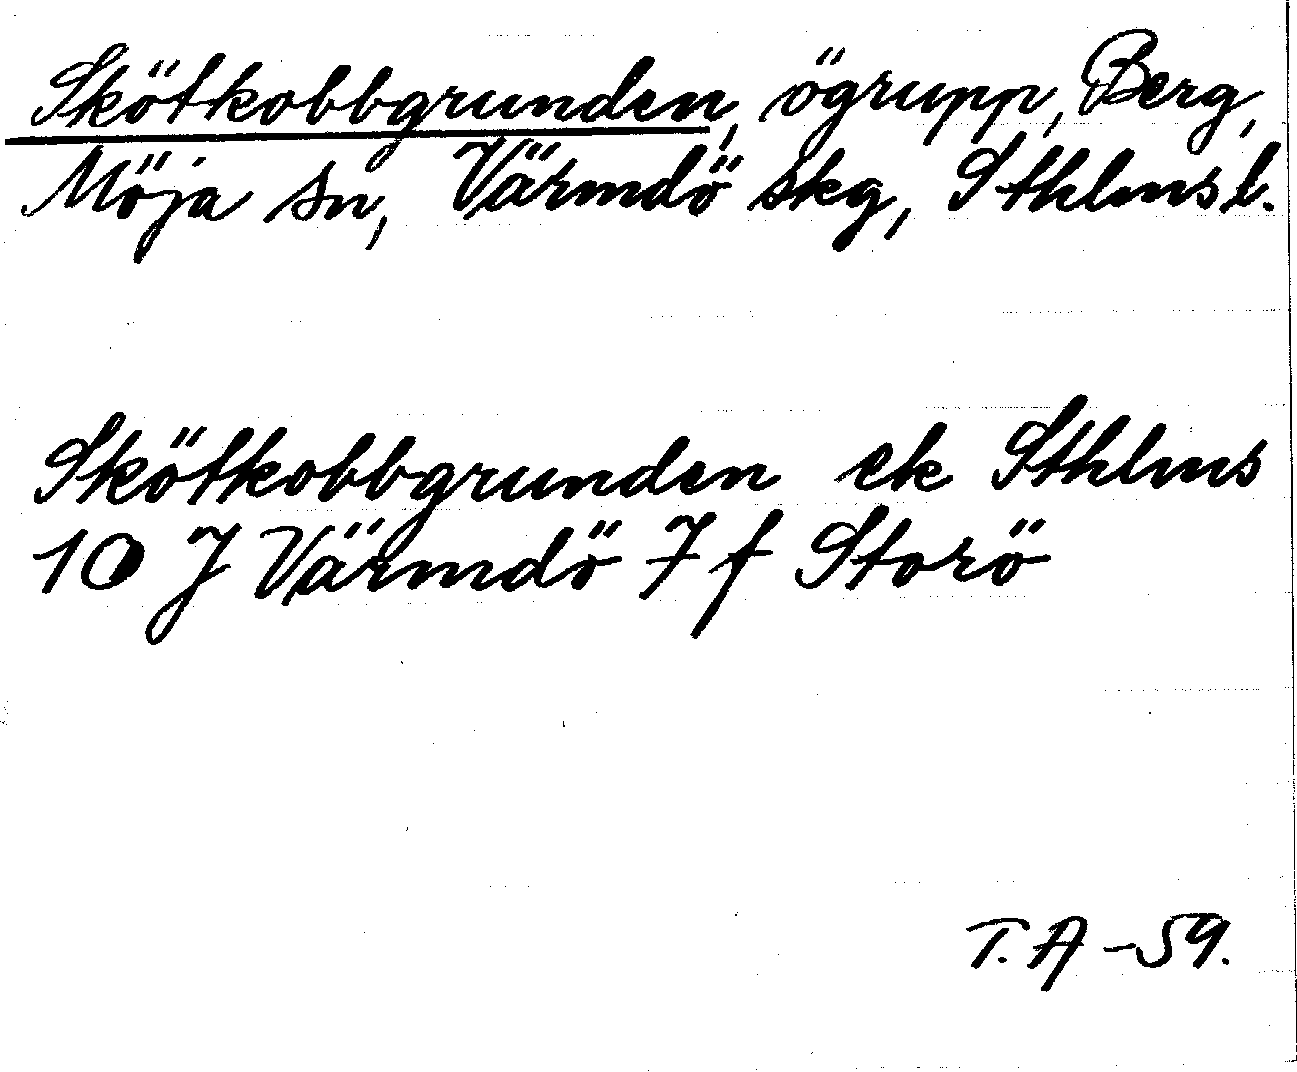 Skötkobbgrunden, ögrupp, Berg,
Möja sn, Värmdö skg, Sthlms l.
Skötkobbgrunden ek Sthlms
10 J Värmdö 7 f Storö
T. A -59.